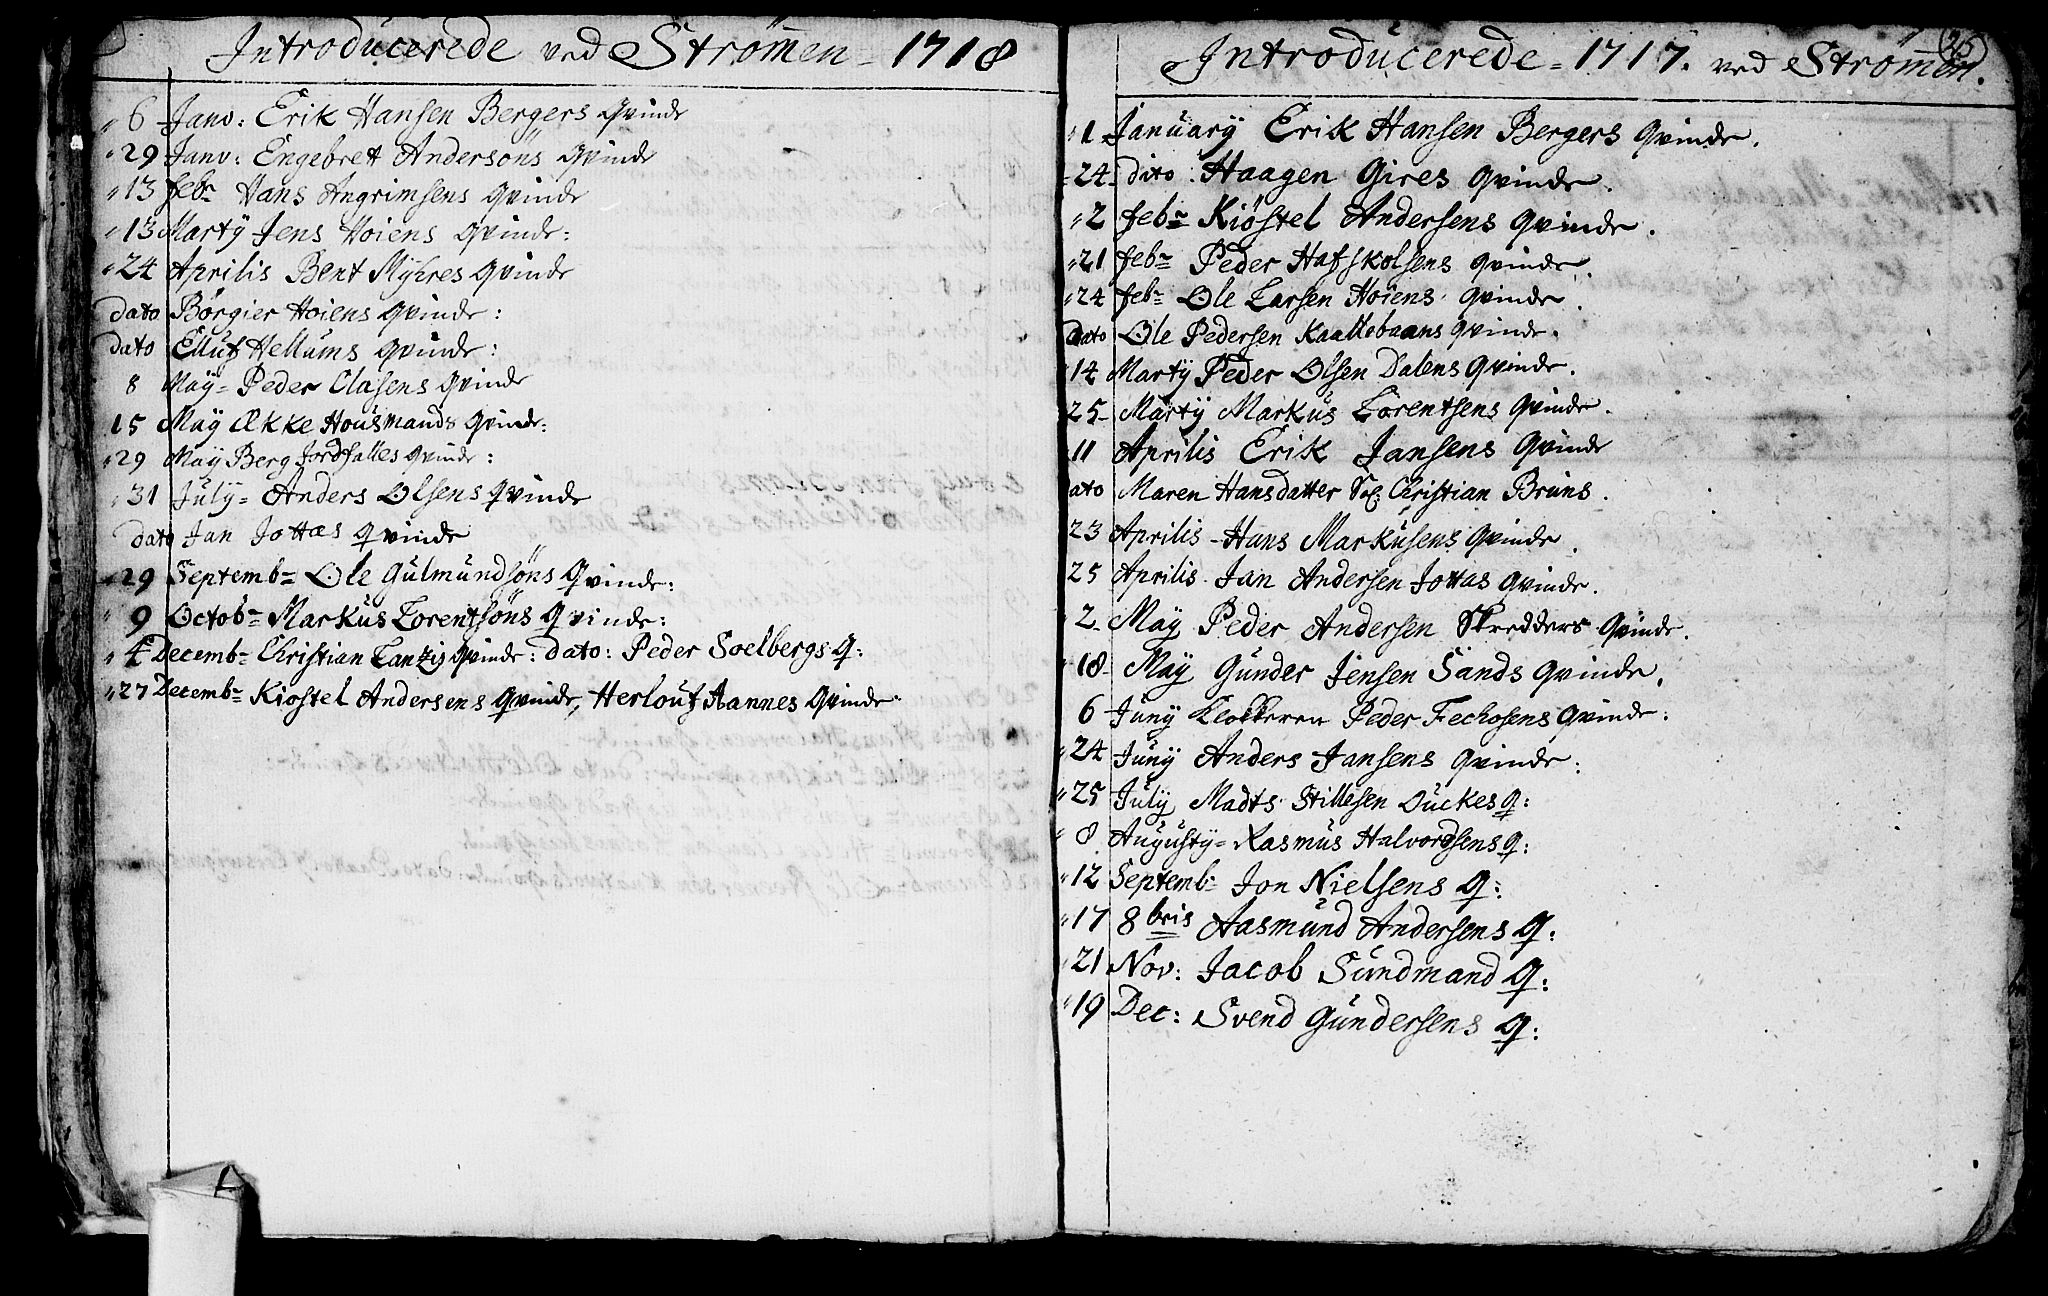 Introducerede ved Strømen = 1718
6 Janv: Erik Hansen Bergers qvinde
29 Janv: Engebret Andersøns qvinde
13 febr Hans Angrimsens qvinde
13 Martÿ Jens Hoiens qvinde:
24 Aprilis Bent Mÿhres qvinde
dato Börgier Hoiens qvinde:
dato Elluf Hellums qvinde:
8 Maÿ = Peder Olasens qvinde
15 Maÿ Ække Housmands qvinde:
29 Maÿ Berg Jordfalles qvinde:
31 Julÿ = Anders Olsens qvinde
dato Jan Jottas qvinde
29 Septemb= Ole Gulmundsöns qvinde:
9 Octob= Markus Lorentsöns qvinde:
4 Decemb= Christian Tantzis qvinde: dato: Peder Soelbergs q:
27 Decemb= Kiostel Andersens qvinde, Herlouf Aannes qvinde
25
Introducerede = 1717. ved Strømen.
1 Januarÿ Erik Hansen Bergers qvinde.
24 dito: Haagen Gires qvinde.
2 febr Kiöstel Andersens qvinde.
21 febr Peder Hafskolsens qvinde.
24 febr Ole Larsen Hoiens qvinde.
Dato Ole Pedersen Kaallebaans qvinde.
14 Martÿ Peder Olsen Dalens qvinde.
25 Martÿ Markus Lorentsens qvinde.
11 Aprilis Erik Jansens qvinde
ato Maren Hansdatter Christian Bruns.
23 Aprilis - Hans Markusens qvinde.
25 Aprilis Jan Andersen Jottas qvinde.
2 Maÿ Peder Andersen Skredders qvinde.
18 Maÿ Gunder Jensen Sands qvinde.
6 Junÿ Klokkeren Peder Fechosens qvinde:
24 Junÿ Anders Jansens qvinde:
25 Julÿ Madts Stillesen Duckes q:
8 Augustÿ = Rasmus Halvordsens q:
12 Septemb= Jon Nielsens q:
17 8bris Aasmund Andersens q:
21 Nov: Jacob Sundmand q:
19 Dec: Svend Gundersens q: